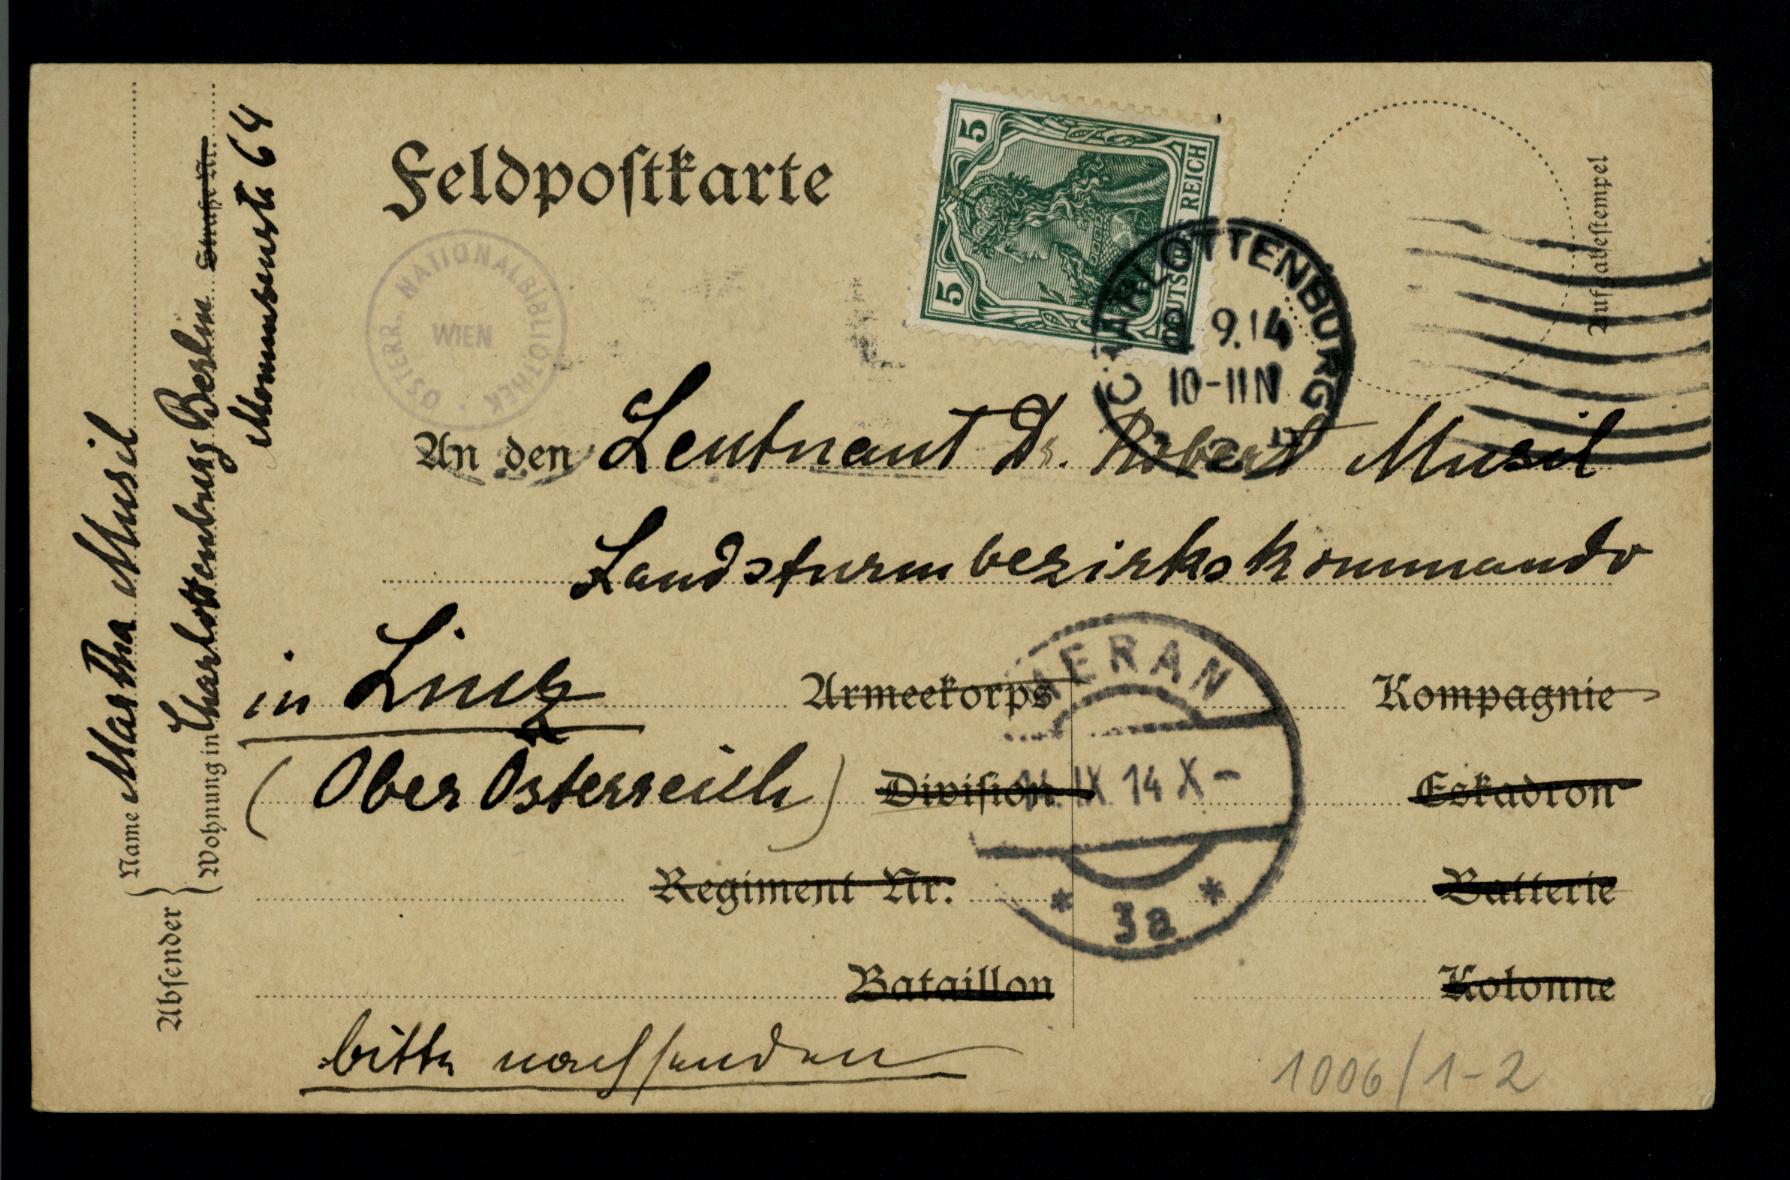 Feldpostkarte
5 5
DEUTSCHES REICH
CHARLOTTENBURG
9.14
10-11 N
2
Aufgabestempel
ÖSTERR. NATIONALBIBLIOTHEK
WIEN
An den Leutnant Dr. Robert Musil
Landsturmbezirkskommando
in Linz Armeekorps Kompagnie
(Ober Österreich) Division Eskadron
Regiment Nr. Batterie
Bataillon Kolonne
bitte nachsenden
MERAN
IX 14 X-
* 3a *
Absender
Name Martha Musil
Wohnung in Charlottenburg Berlin Straße Nr.
Mommsenstr 64
1006/1-2